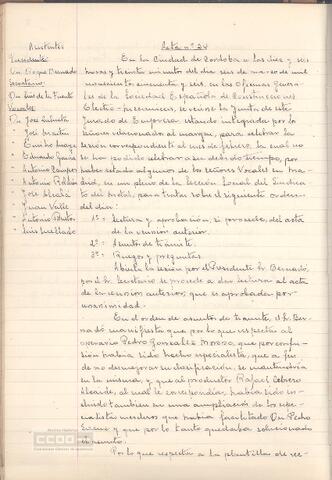 Asistentes
Presidente
D. Roque Bernado
Secretario
Dn Luis de la Fuente
Vocales
Dn José
" José Martin
" Emilio
" Eduardo
" Antonio Campos
" Antonio
" José Alcalá
" Juan Valle
" Antonio
" Luis
Acta nº 24
En la Ciudad de Cordoba a las diez y seis
horas y treinta minutos del dia seis de marzo de mil
novecientos cincuenta y seis, en las Oficinas Genera-
les de la Sociedad Española de Construcciones
Electro-mecanicas, se reúne la Junta de este
Jurado de Empresa estando integrada por los
señores relacionados al margen, para celebrar la
sesión correspondiente al mes de febrero, la cual no
se ha podido celebrar a su debido tiempo, por
haber estado algunos de los señores Vocales en Ma-
drid, en un pleno de la Sección Local del Sindica-
to del Metal, para tratar sobre el siguiente orden
del dia:
1º = Lectura y aprobación, si procede, del acta
de la reunión anterior.
2º = Asuntos de trámite.
3º = Ruegos y preguntas.
Abierta la sesión por el Presidente Sr. Bernadó,
por el Sr. Secretario se procede a dar lectura al acta
de la reunión anterior, que es aprobada por
unanimidad.
En el orden de asuntos de tramite, el Sr. Ber-
nadó manifiesta que por lo que respecta al
operario Pedro Gonzalez Moreno, que por confu-
sión habia sido hecho especialista, que a fin
de no desmejorar su clasificación, se mantendria
en la misma, y que al productor Rafael Cebrero
Alcaide, al cual le correspondia, habia sido in-
cluido tambien en una ampliación de los espe-
cialistas que habia facilitado Dn Pedro
y que por lo tanto quedaba solucionado
el asunto.
Por lo que respecta a la plantilla de rec-
CCOO